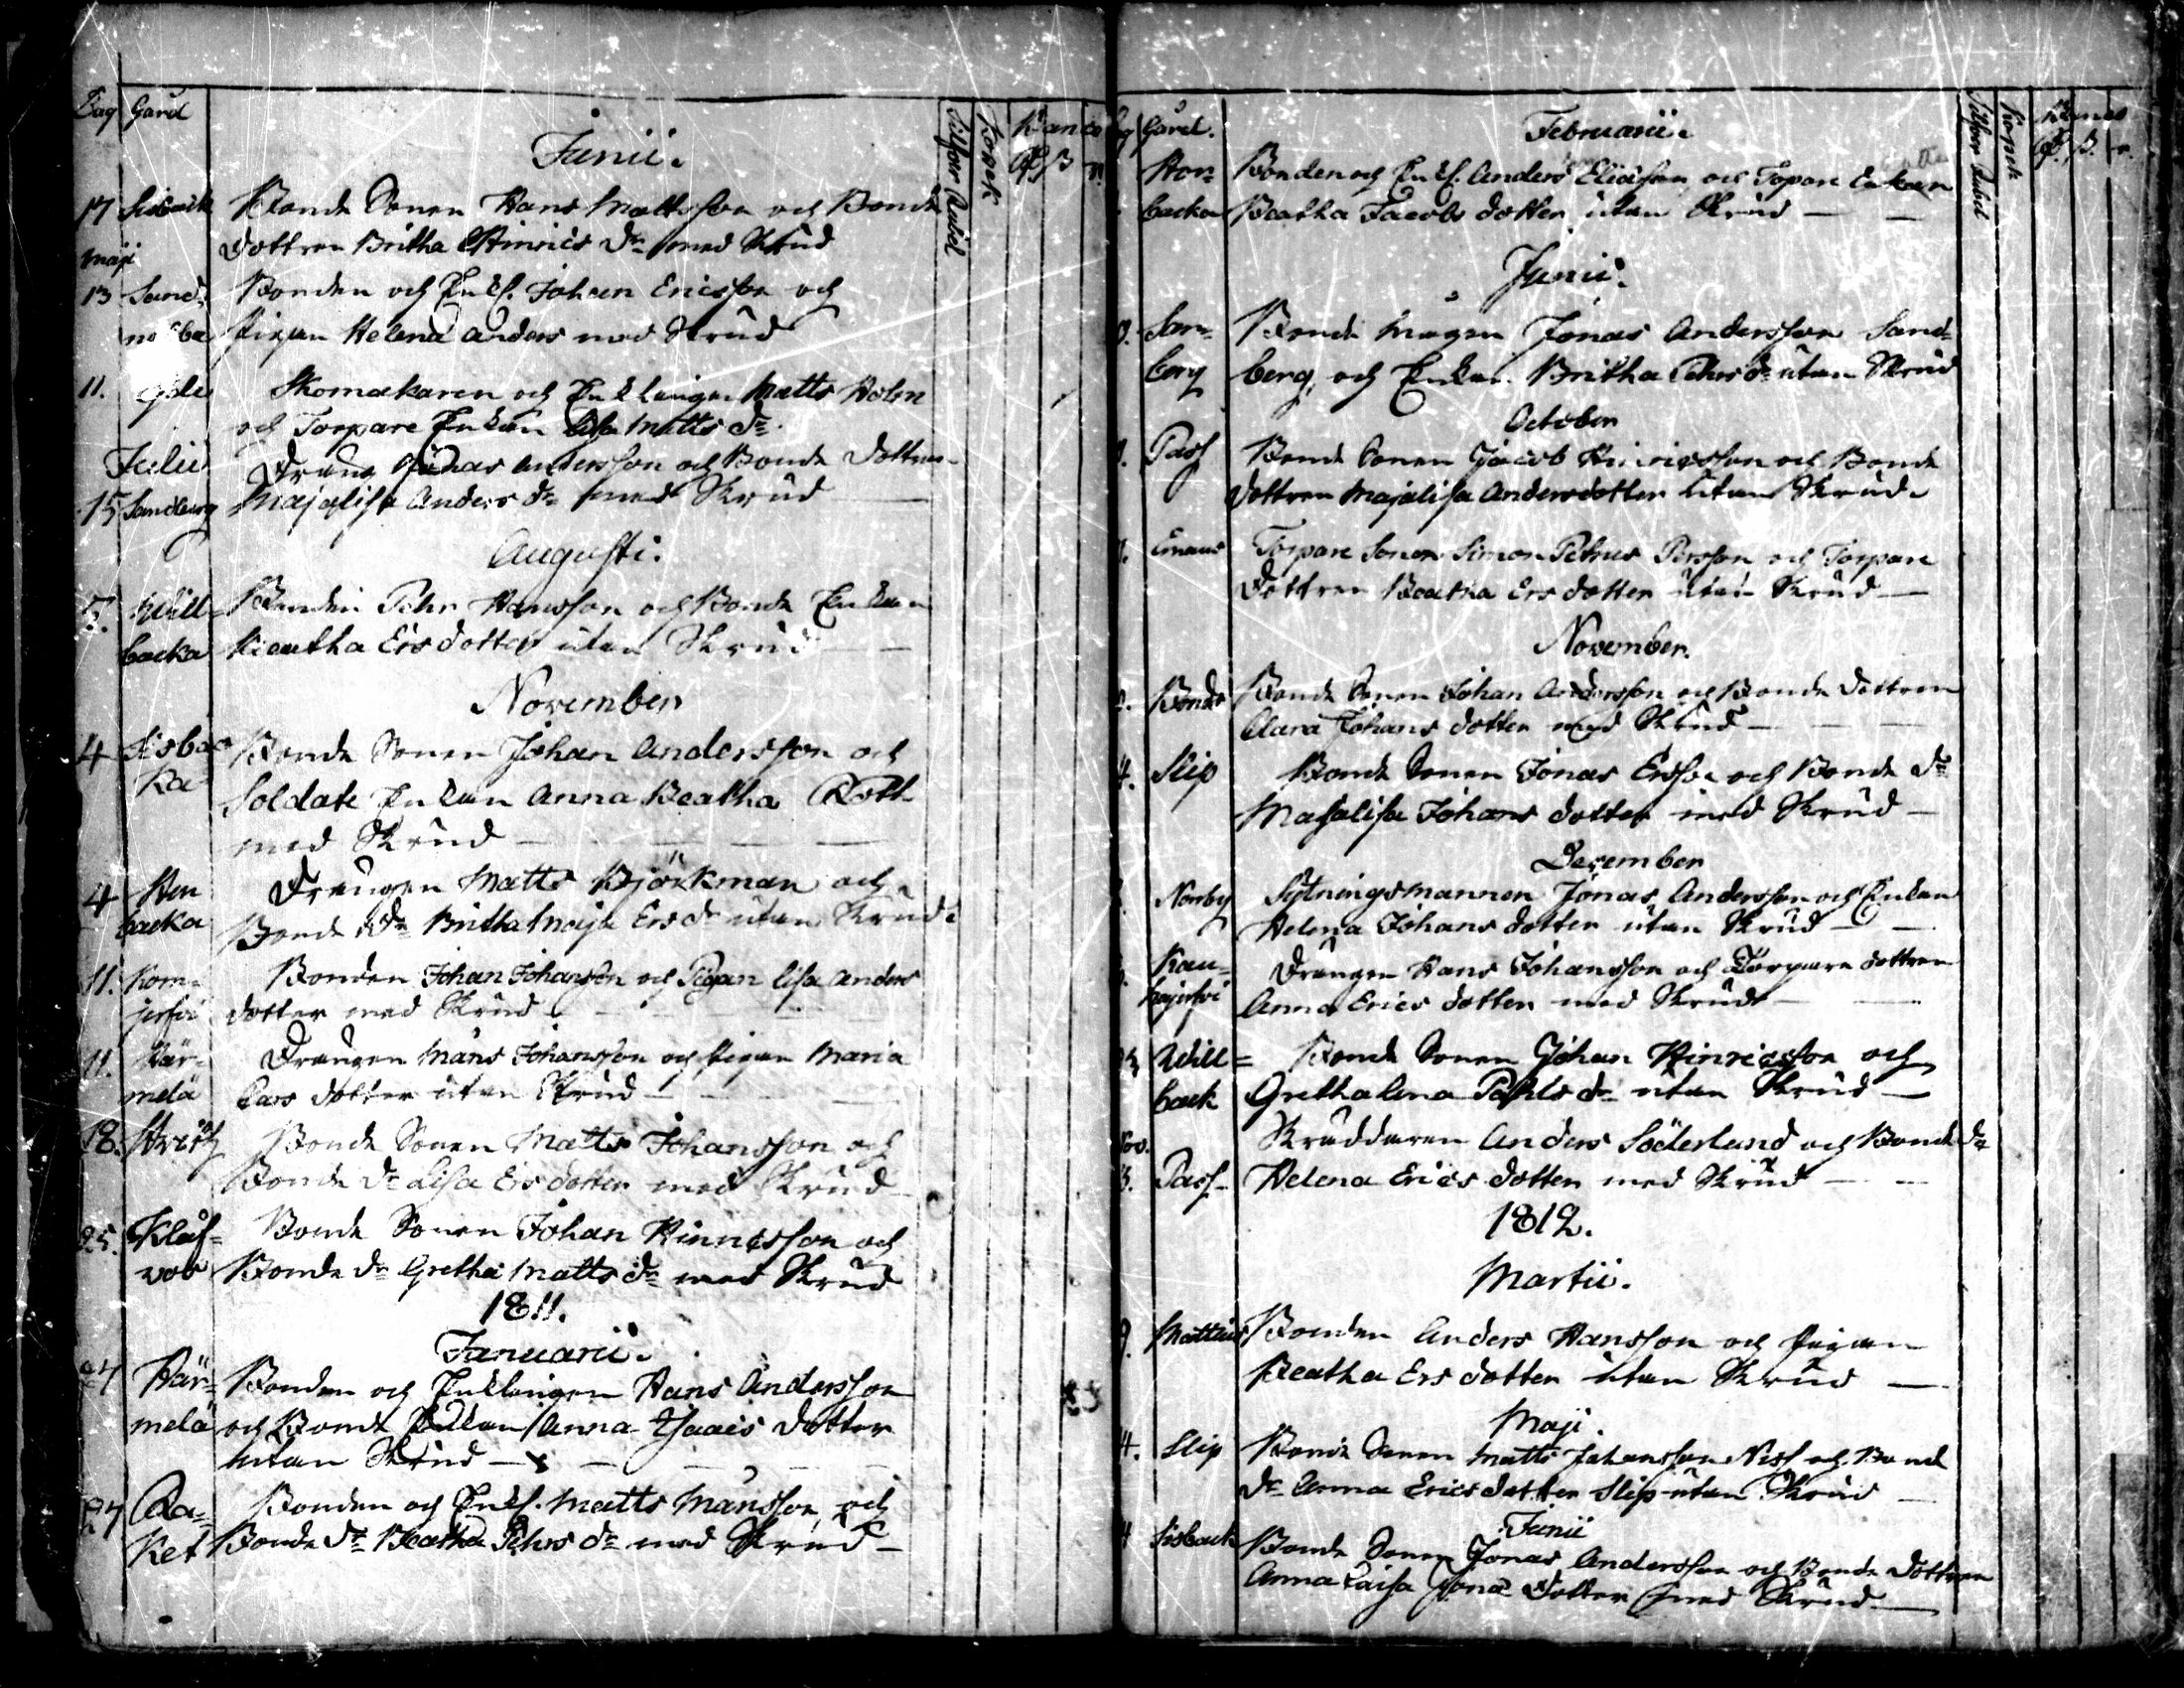 Dag Gård
Silfver Rubel Kopek Banco
Junii.
17 Sisback Bonde Sonen Hans Mattsson och Bonde
Dottren Britha Hinrics dr med Skrud
Maji
13 Sand- Bonden och Enkl. Johan Ericsson och
Pigan Helena Anders med Skrud
11. Skomakaren och Enklingen Matts Holm
och Torpare Enkan Lisa Matts dr
Julii Dräng Jonas Andersson och Bonde Dottren
15 Sandberg Majalisa Anders dr med Skrud
Augusti.
5. Will- Bonden Pehr Hansson och Bonde Enkan
backa Beatha Ersdotter utan Skrud
November
4 Sisbac- Bonde Sonen Johan Andersson och
ka Soldate Enkan Anna Beatha Rott
med Skrud
4 Hen Drängen Matts Björkman och
backa Bonde dr Britha Maja Ers dr utan Skrud
11. Kom- Bonden Johan Johansson och Pigan Lisa Anders
dotter med Skrud
11. Här- Drängen Måns Johansson och Pigan Maria
melä Lars dotter utan Skrud
18. Bonde Sonen Matts Johansson och
Bonde dr Lisa Ersdotter med Skrud
25. Klåf- Bonde Sonen Johan Hinricsson och
vos Bonde dr Gretha Matts dr med Skrud
1811.
Januarii.
27 Här- Bonden och Enklingen Hans Andersson
melä och Bonde Enkan Anna Isaacs dotter
utan Skrud
27 Ra- Bonden och Enkl. Matts Månsson och
ket Bonde dr Beatha Pehrs dr med Skrud
Gård.
Silfver Rubel Kopek
Februarii.
Hon- Bonden och Enkl. Anders Eliasson och Torpare Enkan
backa Beatha Jacobs dotter utan Skrud
Junii.
San- Bonde Mågen Jonas Andersson Sand-
berg berg, och Enkan Britha Pehrs dr utan Skrud
October
Pass Bonde Sonen Jacob Hinricsson och Bonde
Dottren Majalisa Andersdotter utan Skrud
Emaus Torpare Sonen Simon Petrus Persson och Torpare
Dottren Beatha Ersdotter utan Skrud
November.
Bonds Bonde Sonen Johan Andersson och Bonde Dottren
Clara Johans dotter med Skrud
4. Slip Bonde Sonen Jonas Ersson och Bonde dr
Majalisa Johans dotter med Skrud
December
Norrby Sytningsmannen Jonas Andersson och Enkan
Helena Johans dotter utan Skrud
Kau- Drängen Hans Johansson och Torpare dottren
hajerfvi Anna Erics dotter med Skrud
Will- Bonde Sonen Johan Hinricsson och
back Grethalena Pahls dr utan Skrud
Nov. Skräddaren Anders Söderlund och Bonde dr
Pass Helena Erics dotter med Skrud
1812.
Martii.
Mattlus Bonden Anders Hansson och Pigan
Beatha Ersdotter utan Skrud
Maji.
4. Slip Bonde Sonen Matts Johansson Niss och Bond
dr Anna Ericsdotter Slip utan Skrud
Junii
Sisback Bonde Sonen Jonas Andersson och Bonde Dottren
Anna Caisa Jona Dotter med Skrud